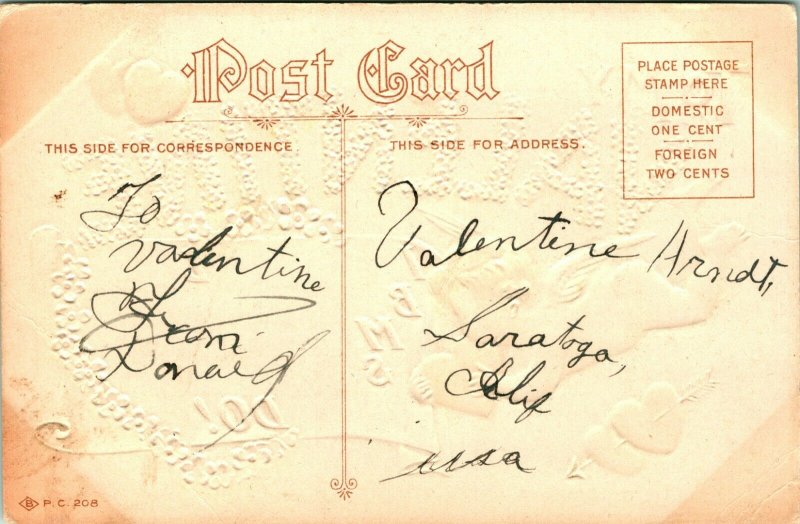 Post Card
THIS SIDE FOR CORRESPONDENCE.
THIS SIDE FOR ADDRESS.
PLACE POSTAGE
STAMP HERE
DOMESTIC
ONE CENT
FOREIGN
TWO CENTS
To
Valentine
From
Donald
Valentine Arndt,
Saratoga,
Calif
usa
DO!
B P.C. 208